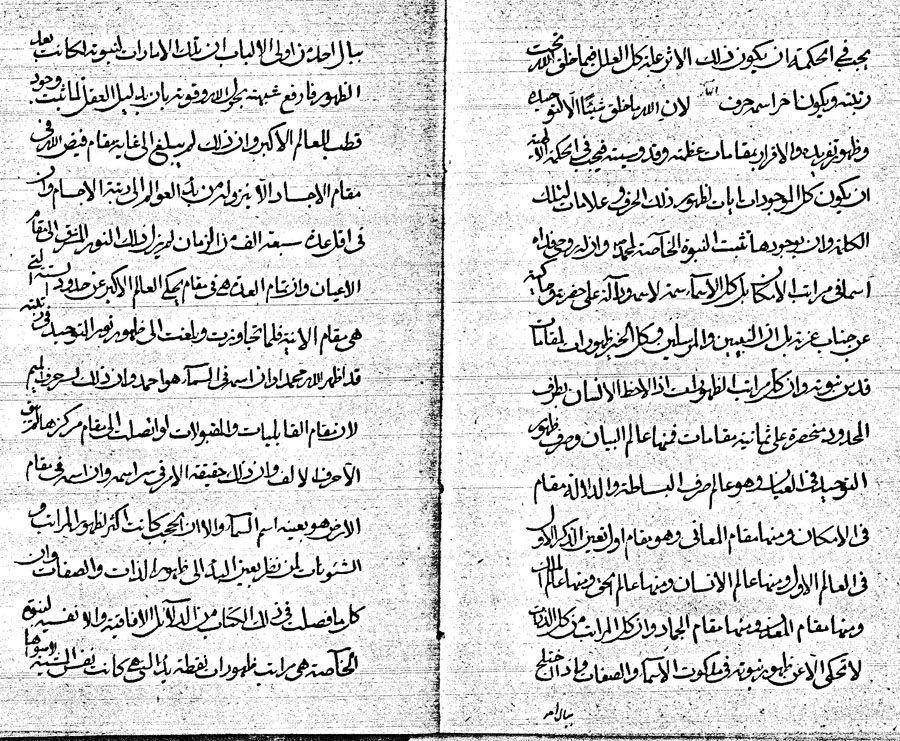 يجب في الحكمة ان يكون ذلك الاثر علة كل العلل فيما خلق الله تحت
رتبته ويكون اخر اسمه حرف لان الله ما خلق شيئا الا لتوحيده
وظهور تفريده والاقرار بمقامات عظمته وقدوسيته فيجب في الحكمة الالهية
ان يكون كل الموجودات ايات لظهور ذلك الحرف وعلامات لتلك
الكلمة وان بوجودها تثبت النبوة الخاصة لمحمد وان له روحي فداه
اسماء في مراتب الامكان بل كل الاسماء سمة لاسمه ودالة على حضرته
عن جناب عزته بل ان النبيين والمرسلين وكل الحق ظهورات لمقامات
قدس نبوته وان كل مراتب الظهورات اذا لاحظ الانسان بطرف
المحدود منحصرة على ثمانية مقامات فمنها عالم البيان وصرف ظهور
التوحيد في العيان وهو عالم صرف البساطة والدلالة مقام
في الامكان ومنها مقام المعاني وهو مقام اول تعين الذكر الاول
في العالم الاول ومنها عالم الانسان ومنها عالم الجن ومنها عالم الملك
ومنها مقام المعدن ومنها مقام الجماد وان كل المراتب من كل الذرات
لا تحكي الا عن ظهور نبوته في ملكوت الاسماء والصفات واذا ان جناح
بيال احد
بيال احد من اولي الالباب ان تلك الامارات لنبوته لكانت بعد
الظهور فارفع شبهته بحول الله وقوته بان بدليل العقل لما ثبت وجود
قطب للعالم الاكبر وان ذلك لم يبلغ الى غاية مقام فيض الله في
مقام الاجساد الا بنزوله من العوالم الى رتبة الاجسام وان
في اقل عدة سبعة الف من الزمان لم ينزل ذلك النور المتفرد الى مقام
الاعيان وان تمام العدة هي في مقام يحكي العالم الاكبر عن حدود الستة التي
هي مقام الانية فلما تجاوزت وبلغت الى ظهور نور التوحيد في رتبته
قد اظهر الله محمدا وان اسمه في السماء هو احمد وان ذلك لسر حرف الميم
لان تمام القابليات والمقبولات لو اتصلت الى مقام مركزها
الا حرف الالف وان ذلك حقيقة الامر في سر اسمه وان اسمه في مقام
الارض هو بعينه اسم السماء والا ان الحجب كانت اكثر لظهور المراتب و
الشئونات لمن نظر بعين البدء الى ظهور الذات والصفات وان
كل ما فصلت في ذلك الكتاب من الدلائل الافاقية والانفسية لنبوته
الخاصة هي مراتب ظهورات نقطة بدء التي هي كانت نفس المشية